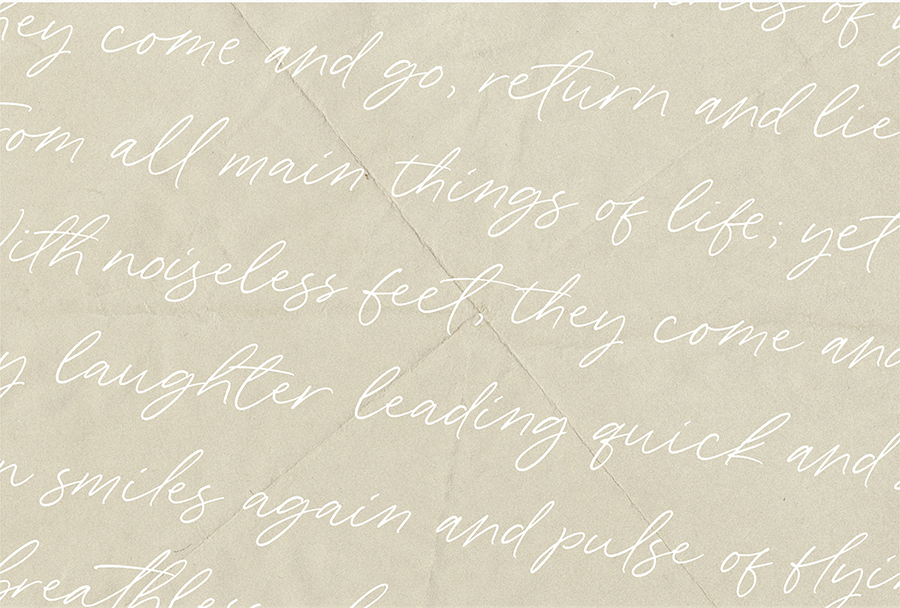 of
hey come and go, return and lie
rom all main things of life; yet
ith noiseless feet, they come and
y laughter leading quick and
n smiles again and pulse of flyi
breathless